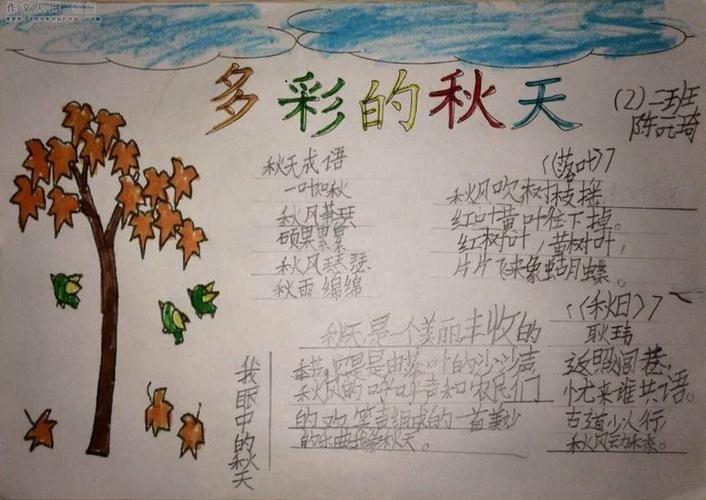 作文人网
www.zuowenren.com
多彩的秋天
(2)二班
陈元琦
秋天成语
一叶知秋
秋风萧瑟
硕果累累
秋风瑟瑟
秋雨绵绵
《落叶》
秋风吹树枝摇,
红叶黄叶往下掉。
红树叶,黄树叶,
片片飞来象蝴蝶。
《秋日》
耿玮
返照闾巷,
忧来谁共语。
古道少人行,
秋风动禾黍。
我眼中的秋天
秋天,是一个美丽丰收的
季节,它是由落叶的沙沙声
秋风的呼呼声和农民们
的欢笑声组成的一首美妙
的乐曲我爱秋天。